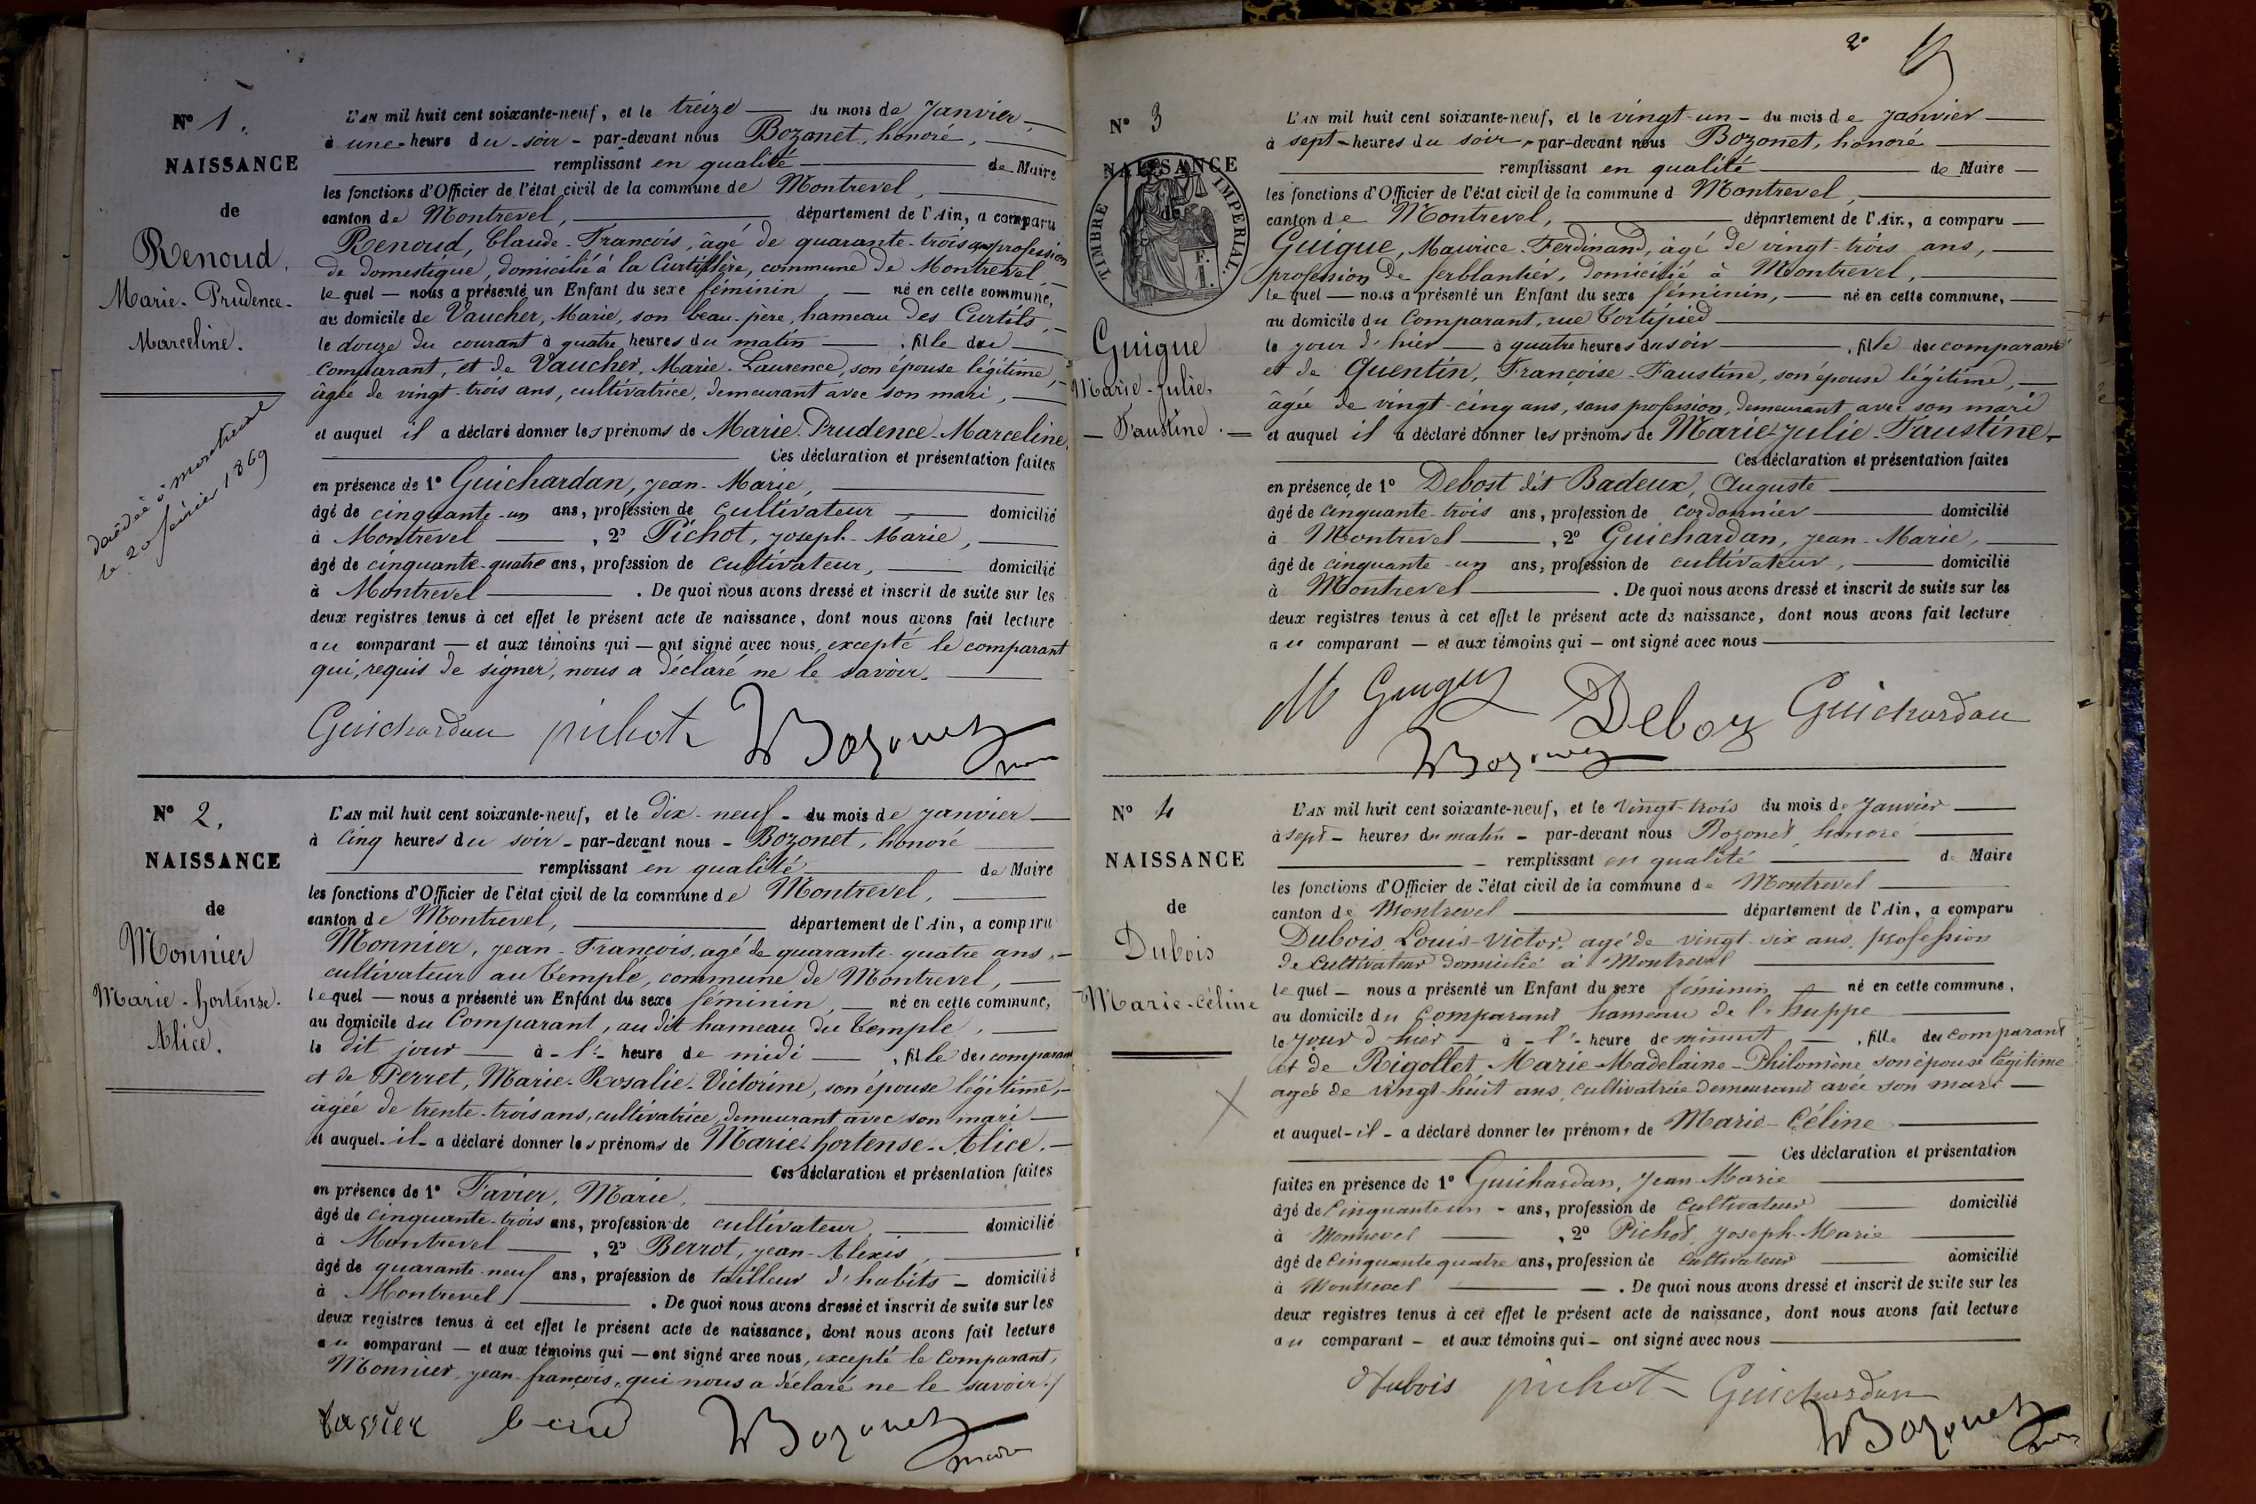 N° 1.
NAISSANCE
de
Renoud,
Marie-Prudence-
Marceline.
décédée à montrevel
le 20 février 1869
L'AN mil huit cent soixante-neuf, et le treize — du mois de Janvier, —
à une heure du soir - par-devant nous Bozonet, honoré, —
remplissant en qualité — de Maire
les fonctions d'Officier de l'état civil de la commune de Montrevel, —
canton de Montrevel, — département de l'Ain, a comparu
Renoud, Claude-François, âgé de quarante-trois ans, profession
de domestique, domicilié à la Curtillière, commune de Montrevel, —
lequel — nous a présenté un Enfant du sexe féminin, — né en cette commune,
au domicile de Vaucher, Marie, son beau-père, hameau des Curtils, —
le douze du courant à quatre heures du matin — , fille du —
comparant, et de Vaucher, Marie-Laurence, son épouse légitime, —
âgée de vingt-trois ans, cultivatrice, demeurant avec son mari, —
et auquel il a déclaré donner les prénoms de Marie-Prudence-Marceline,
— Ces déclaration et présentation faites
en présence de 1° Guichardan, Jean-Marie, —
âgé de cinquante-un ans, profession de cultivateur — domicilié
à Montrevel — , 2° Pichot, Joseph-Marie, —
âgé de cinquante-quatre ans, profession de cultivateur, — domicilié
à Montrevel — . De quoi nous avons dressé et inscrit de suite sur les
deux registres tenus à cet effet le présent acte de naissance, dont nous avons fait lecture
au comparant — et aux témoins qui — ont signé avec nous, excepté le comparant
qui, requis de signer, nous a déclaré ne le savoir. —
Guichardan pichot Bozonet
N° 2.
NAISSANCE
de
Monnier
Marie-hortense-
Alice.
L'AN mil huit cent soixante-neuf, et le dix-neuf - du mois de Janvier —
à cinq heures du soir - par-devant nous - Bozonet, honoré —
remplissant en qualité — de Maire
les fonctions d'Officier de l'état civil de la commune de Montrevel, —
canton de Montrevel, — département de l'Ain, a comparu
Monnier, Jean-François, agé de quarante-quatre ans, —
cultivateur au Temple, commune de Montrevel, —
lequel — nous a présenté un Enfant du sexe féminin, — né en cette commune,
au domicile du Comparant, au dit hameau du Temple, —
le dit jour — à - l' - heure de midi — , fille du comparant
et de Perret, Marie-Rosalie-Victorine, son épouse légitime, —
âgée de trente-trois ans, cultivatrice, demeurant avec son mari —
et auquel - il - a déclaré donner les prénoms de Marie-hortense-Alice. —
— Ces déclaration et présentation faites
en présence de 1° Favier, Marie, —
âgé de cinquante-trois ans, profession de cultivateur — domicilié
à Montrevel — , 2° Berrot, Jean-Alexis, —
âgé de quarante-neuf ans, profession de tailleur d'habits — domicilié
à Montrevel — . De quoi nous avons dressé et inscrit de suite sur les
deux registres tenus à cet effet le présent acte de naissance, dont nous avons fait lecture
au comparant — et aux témoins qui — ont signé avec nous, excepté le Comparant,
Monnier, Jean-françois, qui nous a déclaré ne le savoir./
favier Bozonet
2e
N° 3
NAISSANCE
de
TIMBRE IMPERIAL.
Guigue
Marie-Julie-
— Faustine. —
L'AN mil huit cent soixante-neuf, et le vingt-un - du mois de Janvier —
à sept - heures du soir - par-devant nous Bozonet, honoré —
remplissant en qualité — de Maire —
les fonctions d'Officier de l'état civil de la commune d Montrevel, —
canton de Montrevel, — département de l'Ain, a comparu —
Guigue, Maurice-Ferdinand, âgé de vingt-trois ans, —
profession de ferblantier, domicilié à Montrevel, —
lequel — nous a présenté un Enfant du sexe féminin, — né en cette commune, —
au domicile du Comparant, rue Tortipied —
le jour d'hier — à quatre heures du soir — , fille du comparant
et de Quentin, Françoise-Faustine, son épouse légitime, —
âgée de vingt-cinq ans, sans profession, demeurant avec son mari
et auquel il a déclaré donner les prénoms de Marie-Julie-Faustine. —
— Ces déclaration et présentation faites
en présence de 1° Debost dit Badeux, Auguste —
âgé de cinquante-trois ans, profession de cordonnier — domicilié
à Montrevel — , 2° Guichardan, Jean-Marie, —
âgé de cinquante-un ans, profession de cultivateur, — domicilié
à Montrevel — . De quoi nous avons dressé et inscrit de suite sur les
deux registres tenus à cet effet le présent acte de naissance, dont nous avons fait lecture
au comparant — et aux témoins qui — ont signé avec nous —
M Guigue Debost Guichardan
Bozonet
N° 4
NAISSANCE
de
Dubois
Marie-Céline
L'AN mil huit cent soixante-neuf, et le vingt-trois du mois de Janvier —
à sept - heures du matin - par-devant nous Bozonet honoré —
— remplissant en qualité — de Maire
les fonctions d'Officier de l'état civil de la commune de Montrevel —
canton de Montrevel — département de l'Ain, a comparu
Dubois, Louis-Victor, agé de vingt-six ans, profession
de cultivateur domicilié à Montrevel —
lequel — nous a présenté un Enfant du sexe féminin — né en cette commune,
au domicile du Comparant hameau de la huppe —
le jour d'hier — à - l' - heure de minuit — , fille du comparant
et de Rigollet Marie-Madelaine-Philomène son épouse légitime
agée de vingt-huit ans, cultivatrice demeurant avec son mari —
et auquel - il - a déclaré donner les prénoms de Marie-Céline —
— Ces déclaration et présentation
faites en présence de 1° Guichardan, Jean Marie —
âgé de Cinquante un - ans, profession de Cultivateur — domicilié
à Montrevel — , 2° Pichot, Joseph-Marie —
âgé de Cinquante quatre ans, profession de Cultivateur — domicilié
à Montrevel — . De quoi nous avons dressé et inscrit de suite sur les
deux registres tenus à cet effet le présent acte de naissance, dont nous avons fait lecture
au comparant — et aux témoins qui — ont signé avec nous —
Dubois pichot Guichardan
Bozonet